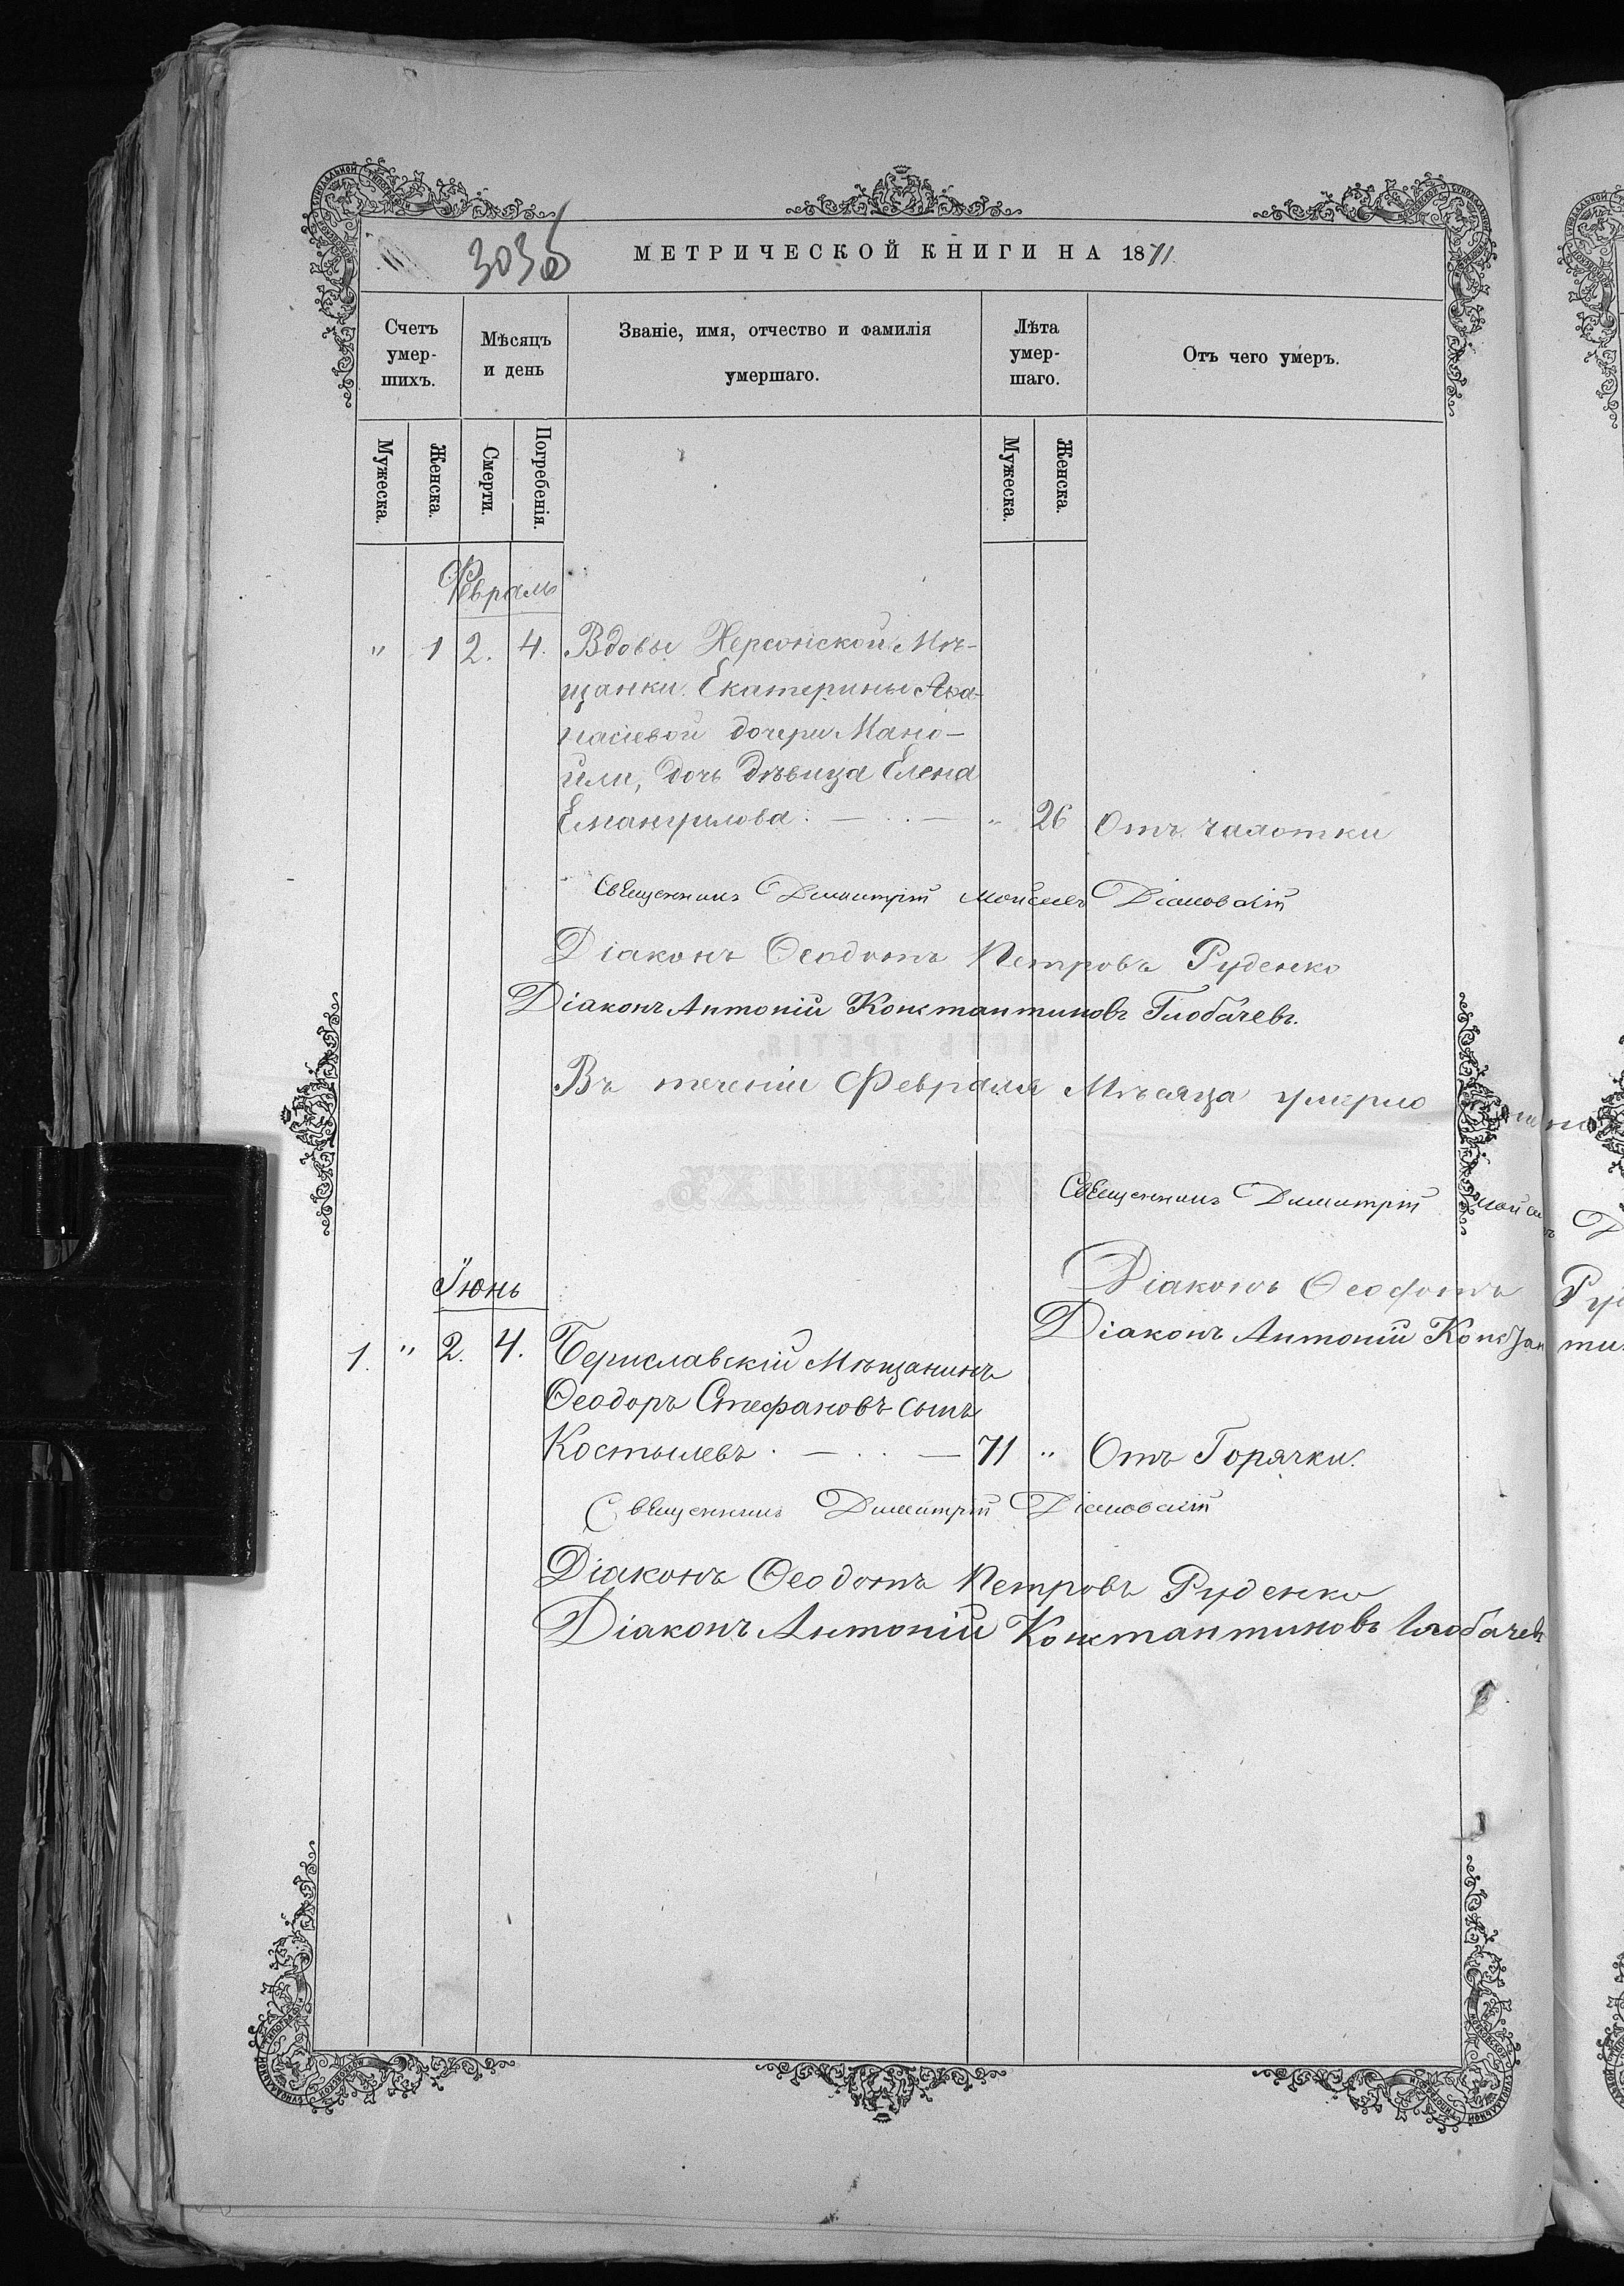 303б
МЕТРИЧЕСКОЙ КНИГИ НА 1871
Счетъ умер-шихъ.
Мѣсяцъ и день
Званіе, имя, отчество и фамилія умершаго.
Лѣта умер-шаго.
Отъ чего умеръ.
Мужеска.
Женска.
Смерти.
Погребенія.
Мужеска.
Женска.
Февраль
" 1 2. 4. Вдовы Херсонской Мѣ-
щанки Екатерины Аѳа-
насіевой дочери Мано-
йли, дочь дѣвица Елена
Емануилова: — .. — " 26 Отъ чахотки
Священникъ Димитрій Моисеевъ
Діаконъ Ѳеодотъ Петровъ Руденко
Діаконъ Антоній Константиновъ Глобачевъ.
Въ теченіи Февраля Мѣсяца умерло
Священникъ Димитрій
Діаконъ Ѳеодотъ
Діаконъ Антоній Констан
Іюнь
1. " 2. 4. Бериславскій Мѣщанинъ
Ѳеодоръ Стефановъ сынъ
Костылевъ . — .. — 71 " Отъ Горячки.
Священникъ Димитрій
Діаконъ Ѳеодотъ Петровъ Руденко
Діаконъ Антоній Константиновъ Глобачевъ